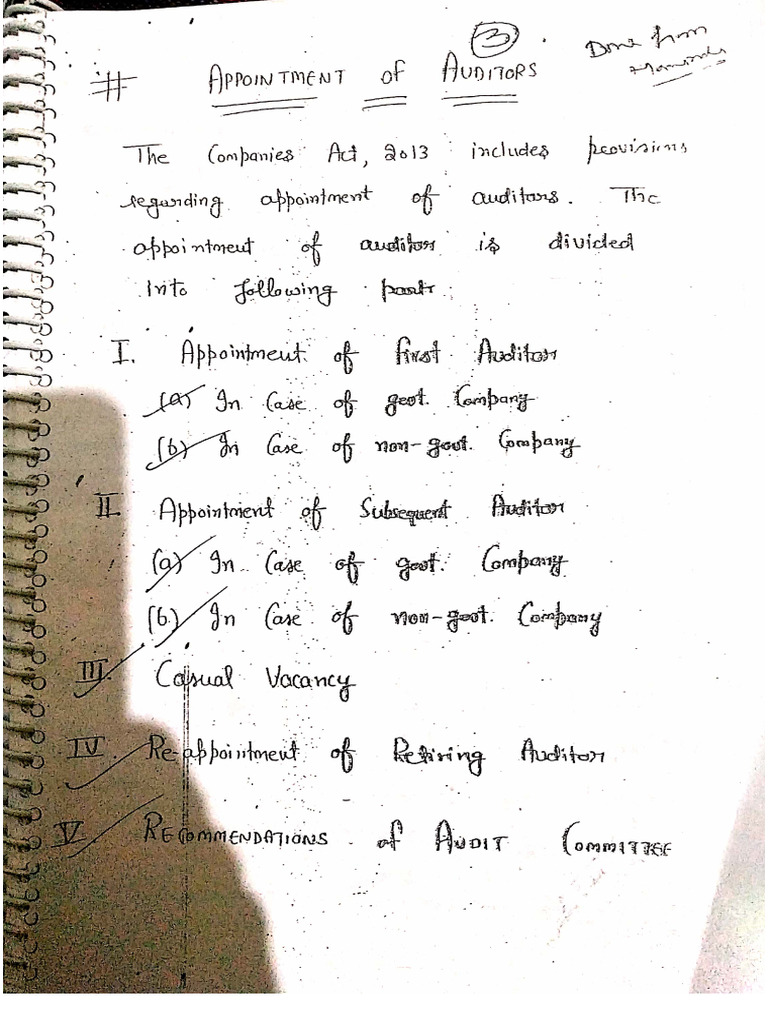 ③
Done from
# APPOINTMENT of AUDITORS
The Companies Act, 2013 includes provisions
regarding appointment of auditors. The
appointment of auditor is divided
into following part:
I. Appointment of first Auditor
(a) In Case of govt. Company
(b) In Case of non-govt. Company
II. Appointment of Subsequent Auditor
(a) In Case of govt. Company
(b) In Case of non-govt. Company
III. Casual Vacancy
IV. Re-appointment of Retiring Auditor
V RECOMMENDATIONS of AUDIT COMMITTEE